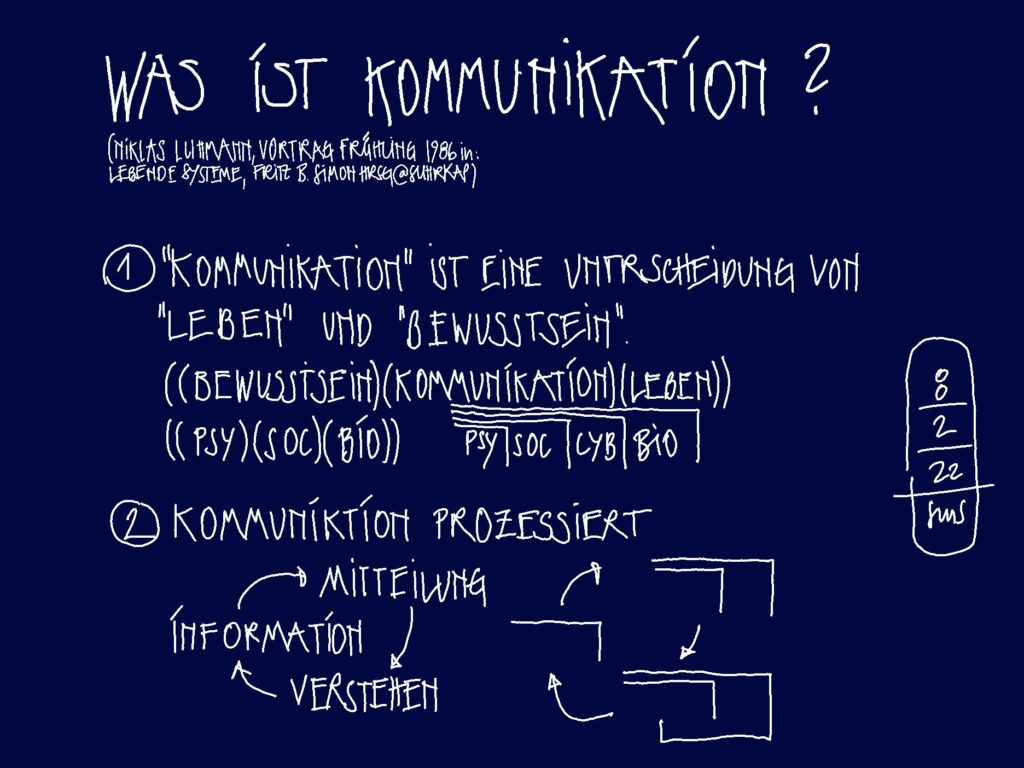 WAS IST KOMMUNIKATION ?
(NIKLAS LUHMANN, VORTRAG FRÜHLING 1986 in:
LEBENDE SYSTEME, FRITZ B. SIMON HRSG@SUHRKAP)
① "KOMMUNIKATION" IST EINE UNTRSCHEIDUNG VON
"LEBEN" UND "BEWUSSTSEIN".
((BEWUSSTSEIN)(KOMMUNIKATION)(LEBEN))
((PSY)(SOC)(BIO)) PSY SOC CYB BIO
② KOMMUNIKTION PROZESSIERT
MITTEILUNG
INFORMATION
VERSTEHEN
8
2
22